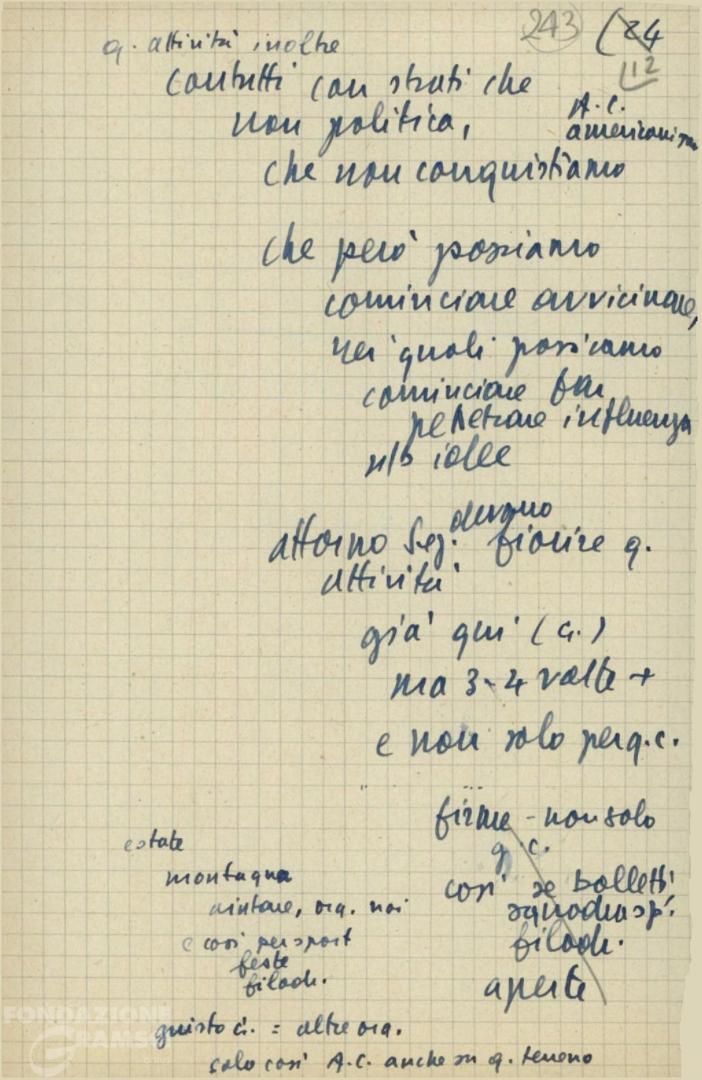 243 (24
112
q. attività inoltre
contatti con strati che
non politica,
A.C.
americanismo
che non conquistiamo
che però possiamo
cominciare avvicinare,
nei quali possiamo
cominciare far
penetrare influenza
n/s idee
attorno Sez. devono fiorire q.
attività
già qui (ci.)
ma 3-4 volte +
e non solo per q.c.
firme - non solo
q.c.
così se bolletti
squadra sp.
filodr.
aperte
estate
montagna
aiutare, org. noi
e così per sport
feste
filodr.
giusto ci. = altre org.
solo così A.C. anche su q. terreno
FONDAZIONE
GRAMSCI